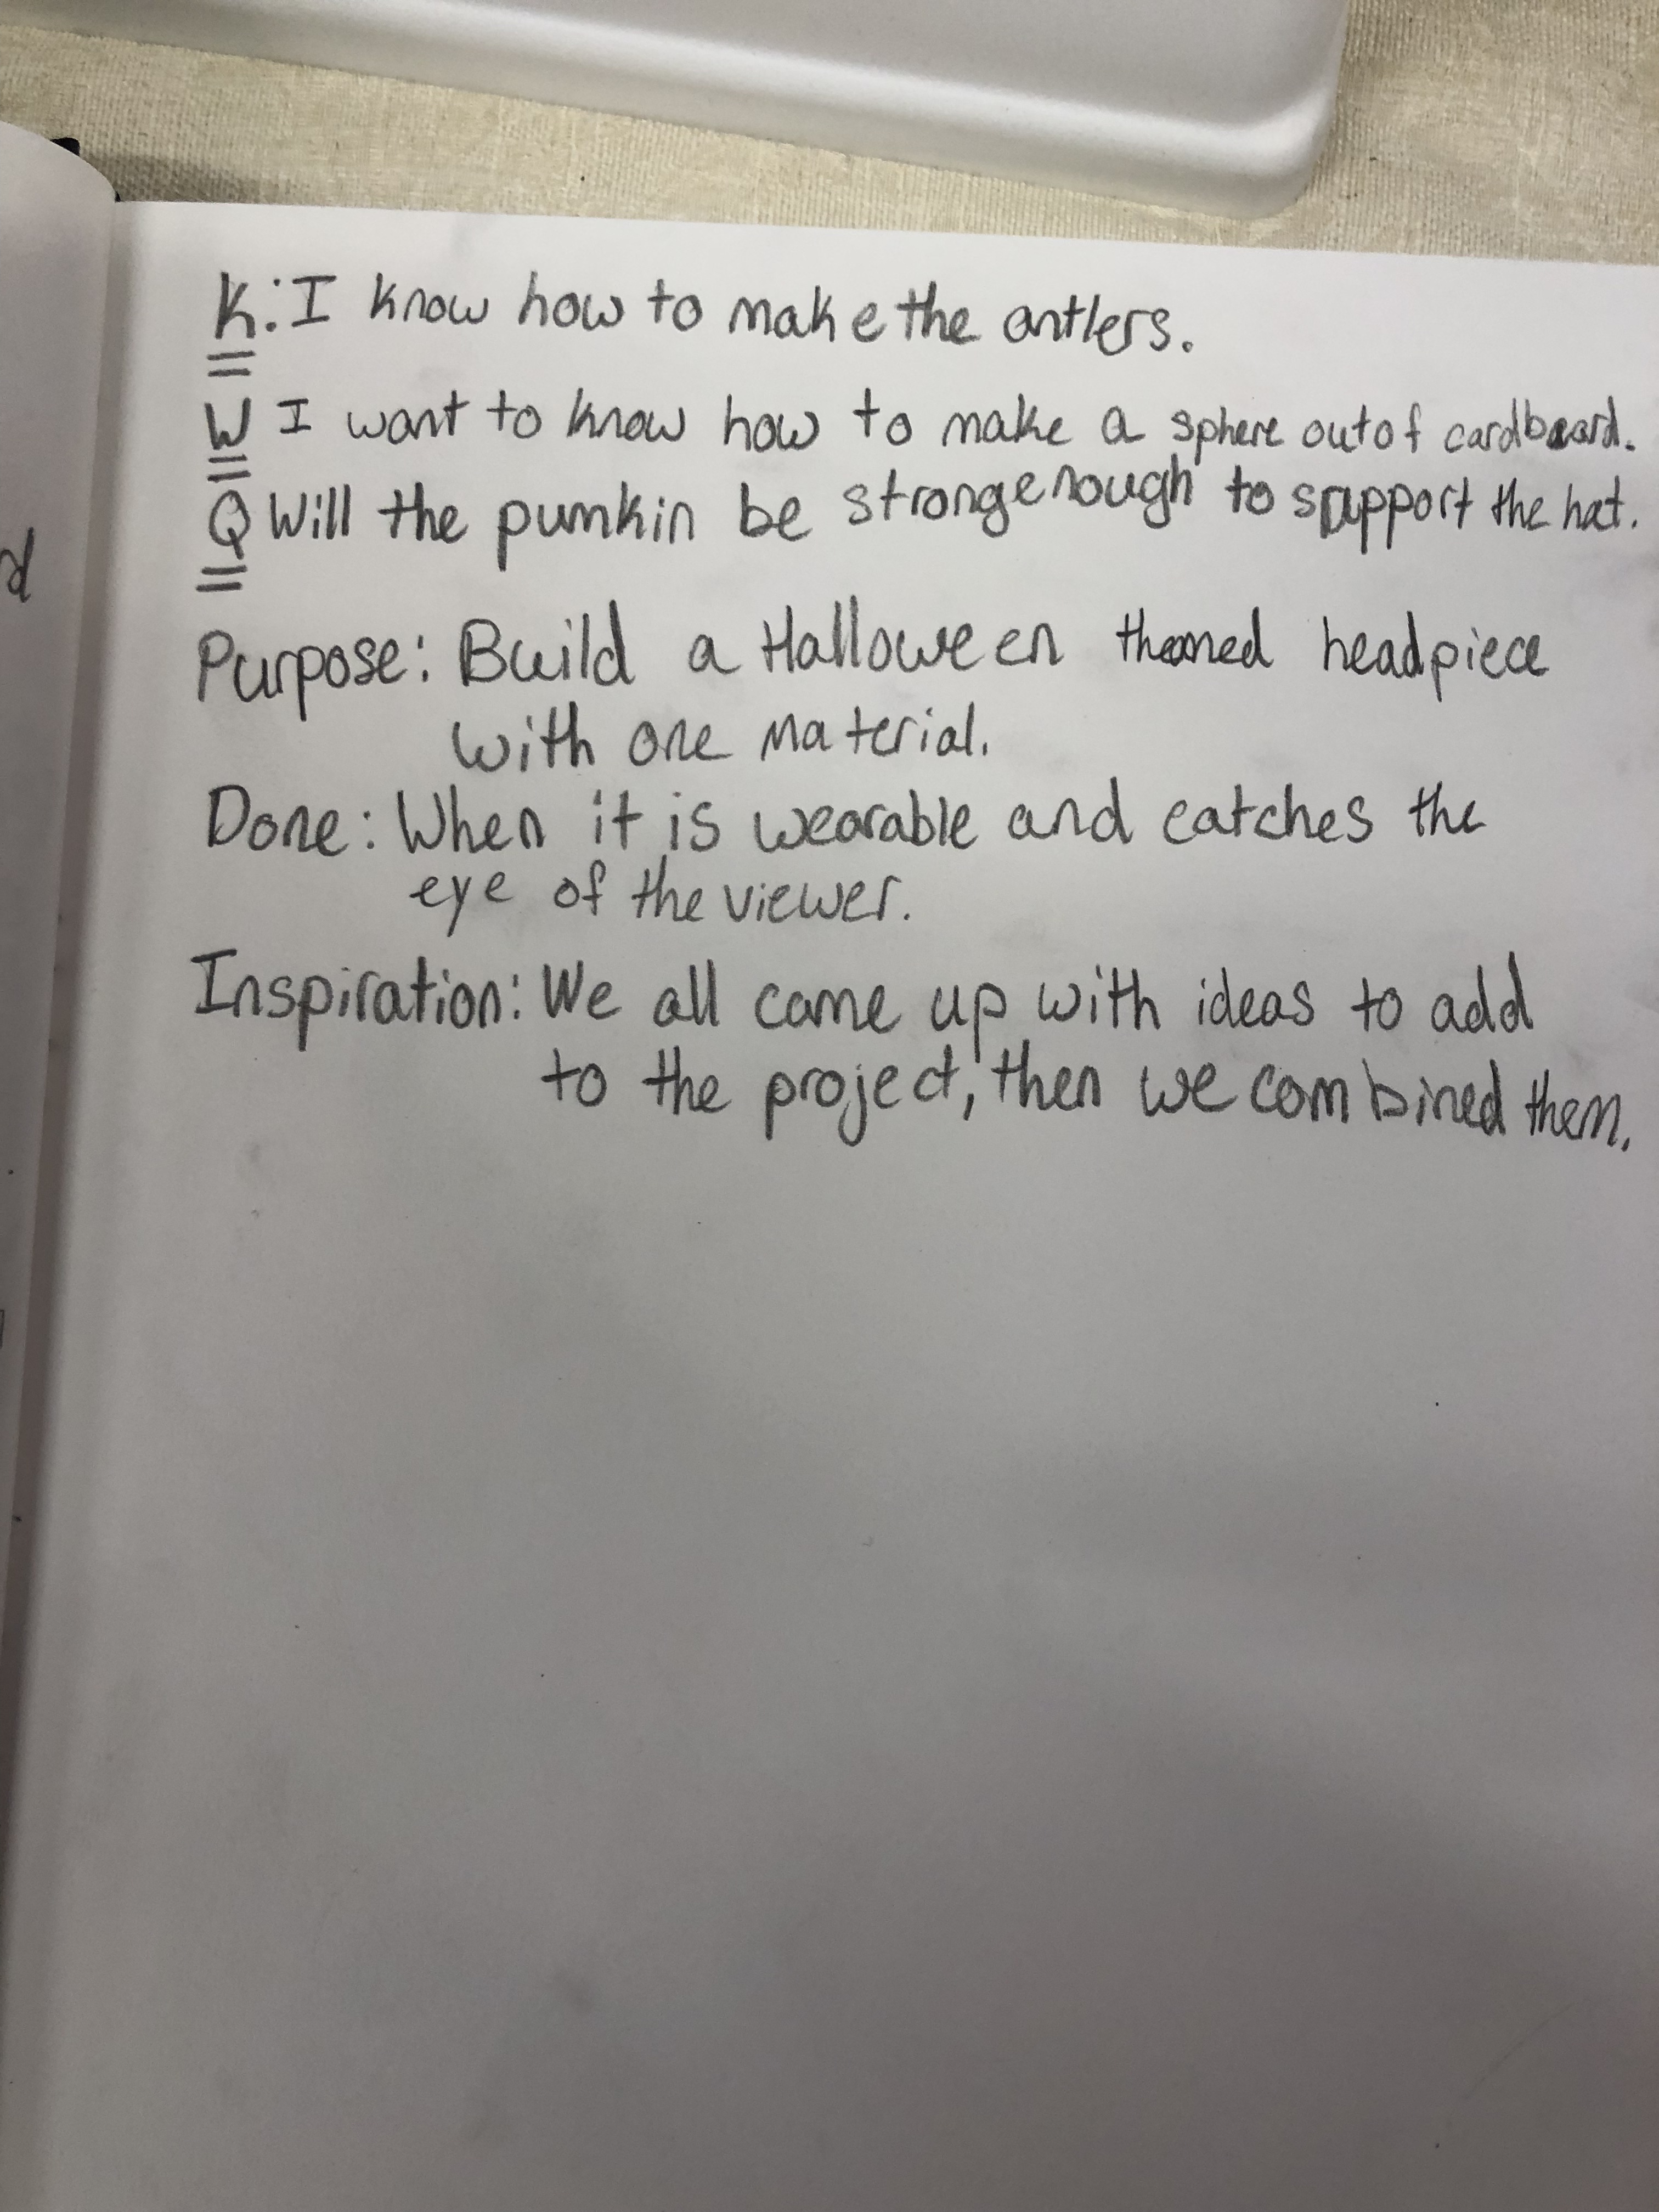 K: I know how to make the antlers.
W I want to know how to make a sphere out of cardboard.
Q Will the pumkin be strong enough to support the hat.
Purpose: Build a Halloween themed headpiece
with one material.
Done: When it is wearable and catches the
eye of the viewer.
Inspiration: We all came up with ideas to add
to the project, then we combined them.